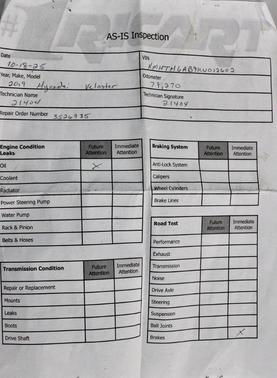 AS-IS Inspection
Date
10-18-25
VIN
Year, Make, Model
2019 Hyundai Veloster
Odometer
79,270
Technician Name
21404
Technician Signature
21404
Repair Order Number 3526935
Engine Condition Leaks Future Attention Immediate Attention
Oil X
Coolant
Radiator
Power Steering Pump
Water Pump
Rack & Pinion
Belts & Hoses
Transmission Condition Future Attention Immediate Attention
Repair or Replacement
Mounts
Leaks
Boots
Drive Shaft
Braking System Future Attention Immediate Attention
Anti-Lock System
Calipers
Wheel Cylinders
Brake Lines
Road Test Future Attention Immediate Attention
Performance
Exhaust
Transmission
Noise
Drive Axle
Steering
Suspension
Ball Joints
Brakes X